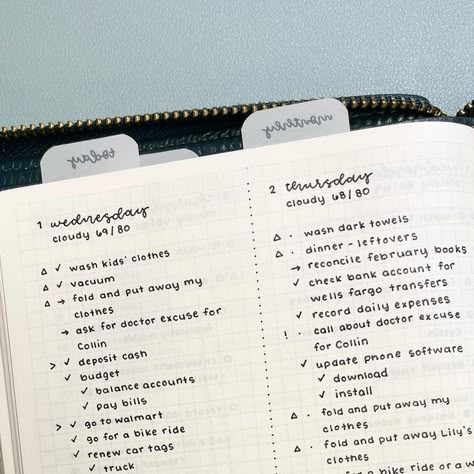 today
monthly
1 wednesday
cloudy 69/80
△ ✓ wash kids' clothes
△ ✓ vacuum
△ → fold and put away my
clothes
→ ask for doctor excuse for
Collin
> ✓ deposit cash
✓ budget
✓ balance accounts
✓ pay bills
> ✓ go to walmart
✓ go for a bike ride
✓ renew car tags
✓ truck
2 thursday
cloudy 68/80
△ . wash dark towels
△ . dinner - leftovers
→ reconcile february books
✓ check bank account for
wells fargo transfers
✓ record daily expenses
! . call about doctor excuse
for Collin
✓ update phone software
✓ download
✓ install
△ . fold and put away my
clothes
△ . fold and put away Lily's
clothes
for a bike ride or a